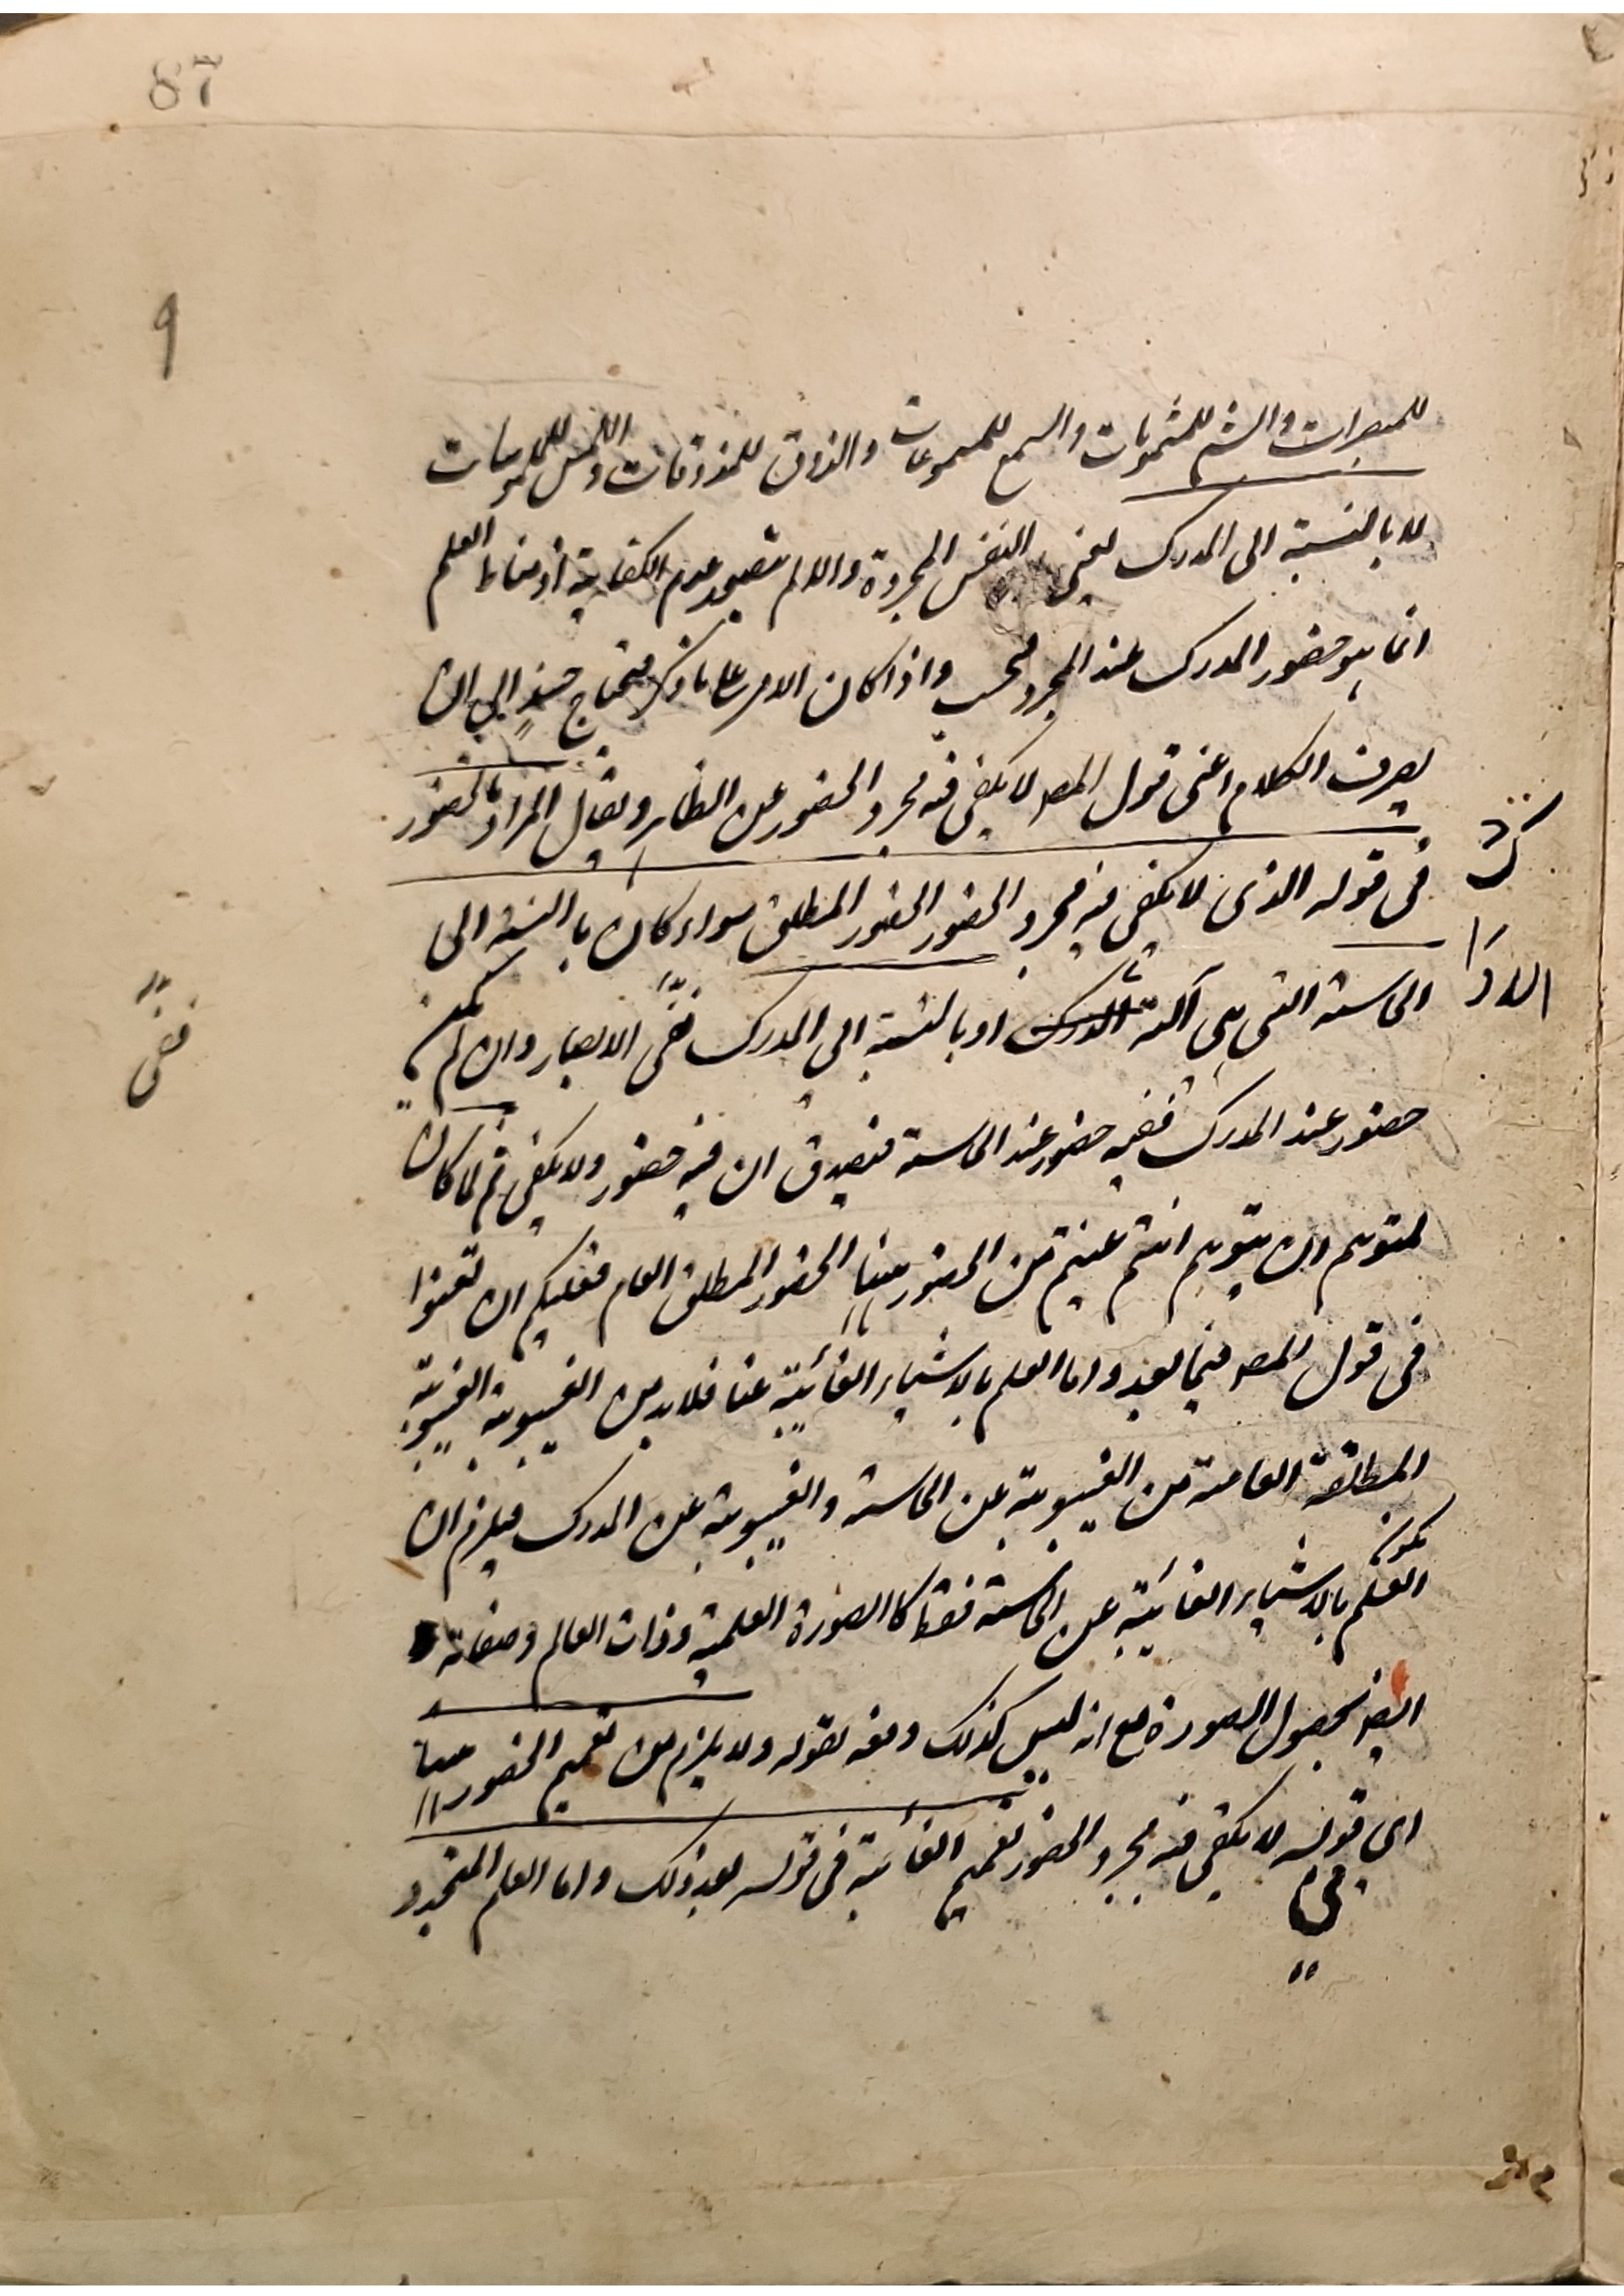 87
9
للمبصرات والشم للمشمومات والسمع للمسموعات والذوق للمذوقات واللمس للملموسات
لا بالنسبة الى المدرك يعنى النفس المجردة والا لم يتصور عدم الكفاية اذ مناط العلم
انما هو حضور المدرك عند المجرد فحسب واذا كان الامر على ما ذكر فيحتاج حينئذ الى ان
يصرف الكلام اعنى قول المصـ لا يكفى فيه مجرد الحضور عن الظاهر ويقال المراد بالحضور
فى قوله الذى لا يكفى فيه مجرد الحضور الحضور المطلق سواء كان بالنسبة الى
الحاسة التى هى آلة الادراك او بالنسبة الى المدرك ففى الابصار وان لم يكن
حضور عند المدرك ففيه حضور عند الحاسة فيصدق ان فيه حضور ولا يكفى ثم لما كان
لمتوهم ان يتوهم انتم عنيتم من الحضور ههنا الحضور المطلق العام فعليكم ان تعنوا
فى قول المصـ فيما بعد واما العلم بالاشياء الغائبة عنا فلا بد من الغيبوبة الغيبوبة
المطلقة العامة من الغيبوبة عن الحاسة والغيبوبة عن المدرك فيلزم ان
يكون العلم بالاشياء الغائبة عن الحاسة فقط كالصورة العلمية وذات العالم وصفاته
ايضا بحصول الصورة مع انه ليس كذلك دفعه بقوله ولا يلزم من تعميم الحضور ههنا
اى فى قوله لا يكفى فيه مجرد الحضور تعميم الغائبة فى قوله بعد ذلك واما العلم المتجدد
الادرا
ك
ففى